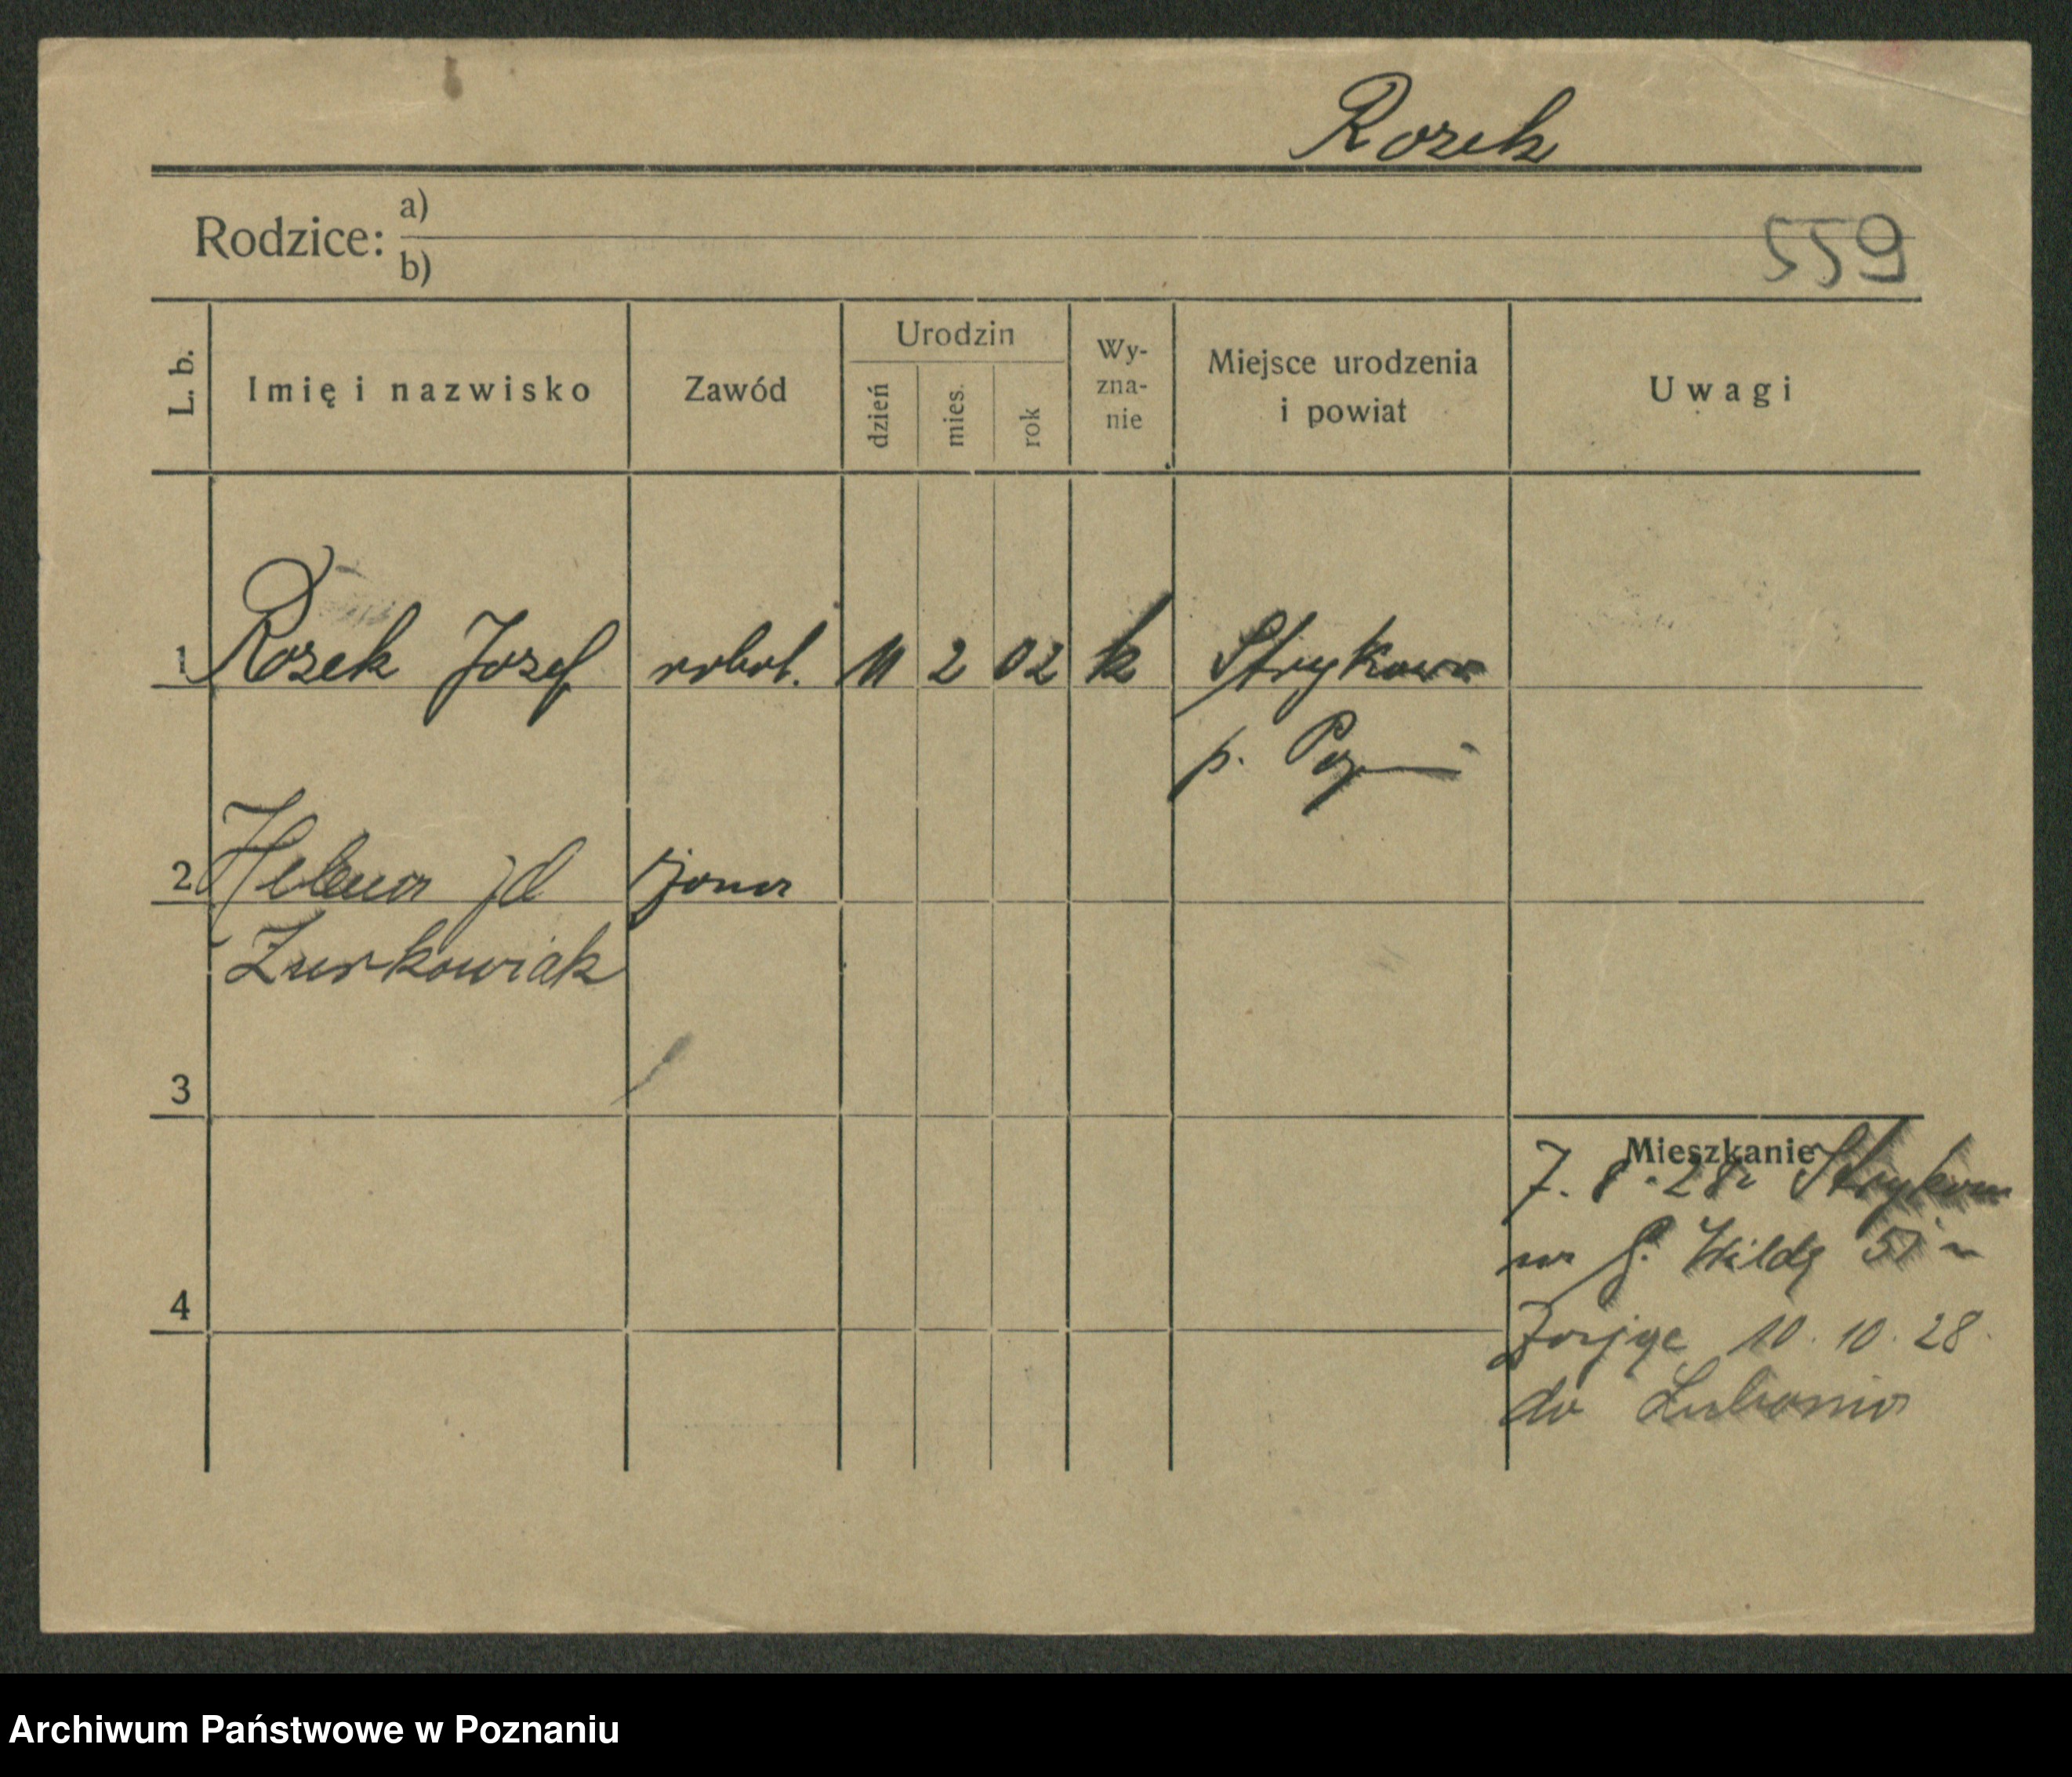 Rozek
Rodzice:
a)
b)
559
L. b.
Imię i nazwisko
Zawód
Urodzin
dzień
mies.
rok
Wy-
zna-
nie
Miejsce urodzenia
i powiat
Uwagi
1 Rozek Jozef robot. 11 2 02 k Strykowo
p. Poz
2 Helena zd żona
Żurkowiak
3
4
Mieszkanie
7. 8. 28 Strykowo
na G. Wildę 51
10. 10. 28.
do Lubonia
Archiwum Państwowe w Poznaniu